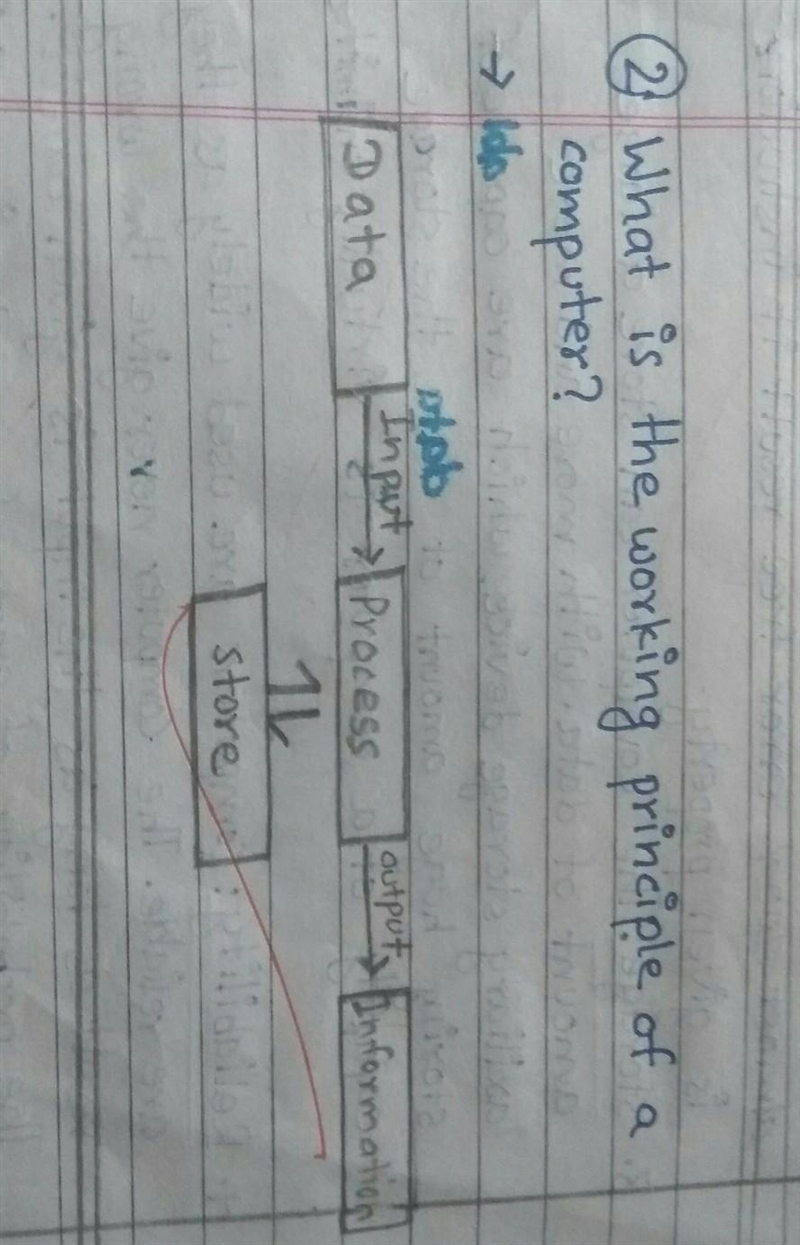 ② What is the working principle of a
computer?
→
Data Input → Process output → Information
store